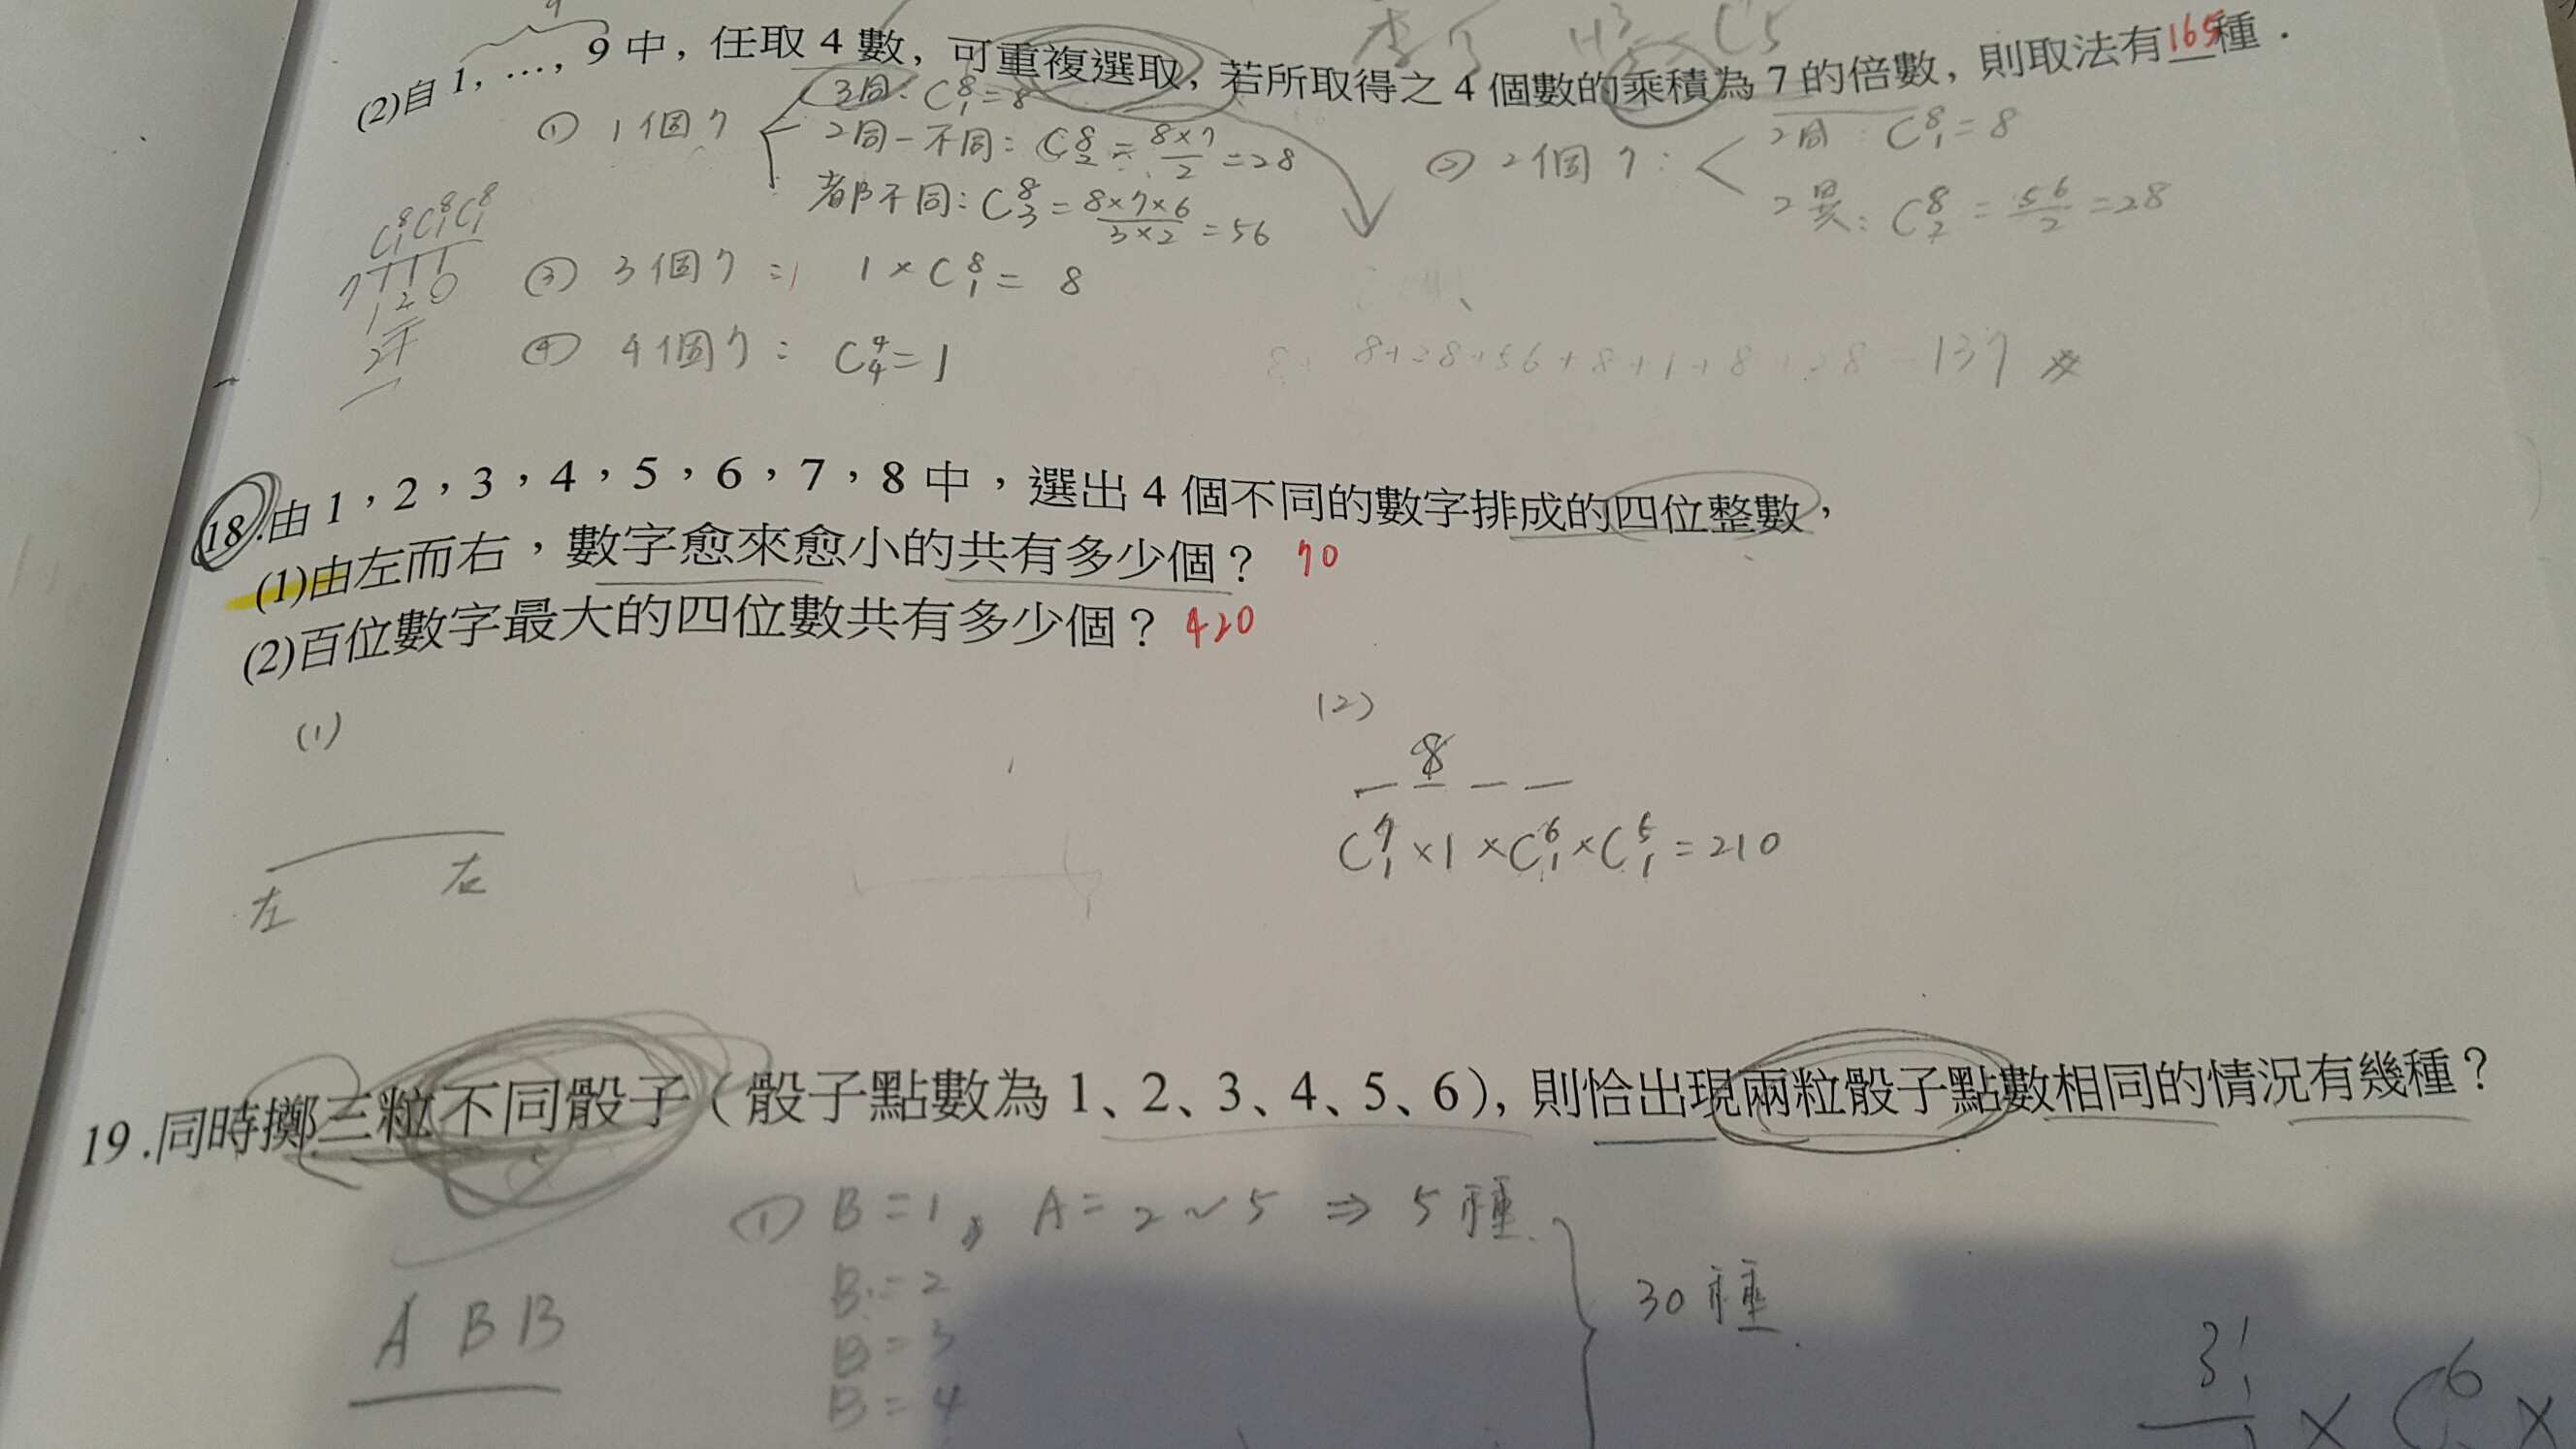 (2)自 1, …, 9 中, 任取 4 數, 可重複選取, 若所取得之 4 個數的乘積為 7 的倍數, 則取法有165種.
① 1個7
3同: C⁸₁=8
2同一不同: C⁸₂=8×7/2=28
都不同: C⁸₃=8×7×6/3×2=56
② 2個7:
2同: C⁸₁=8
2異: C⁸₂=56/2=28
C⁸₁C⁸₁C⁸₁
③ 3個7: 1×C⁸₁=8
④ 4個7: C⁴₄=1
8+28+56+8+1+8+28=137
18.由 1,2,3,4,5,6,7,8 中,選出 4 個不同的數字排成的四位整數,
(1)由左而右,數字愈來愈小的共有多少個? 70
(2)百位數字最大的四位數共有多少個? 420
(1)
左 右
(2)
8
C⁷₁×1×C⁶₁×C⁵₁=210
19.同時擲三粒不同骰子(骰子點數為 1、2、3、4、5、6), 則恰出現兩粒骰子點數相同的情況有幾種?
① B=1, A=2~5 ⇒ 5種
B=2
B=3
B=4
30種
A B B
3!/1 × C⁶ ×